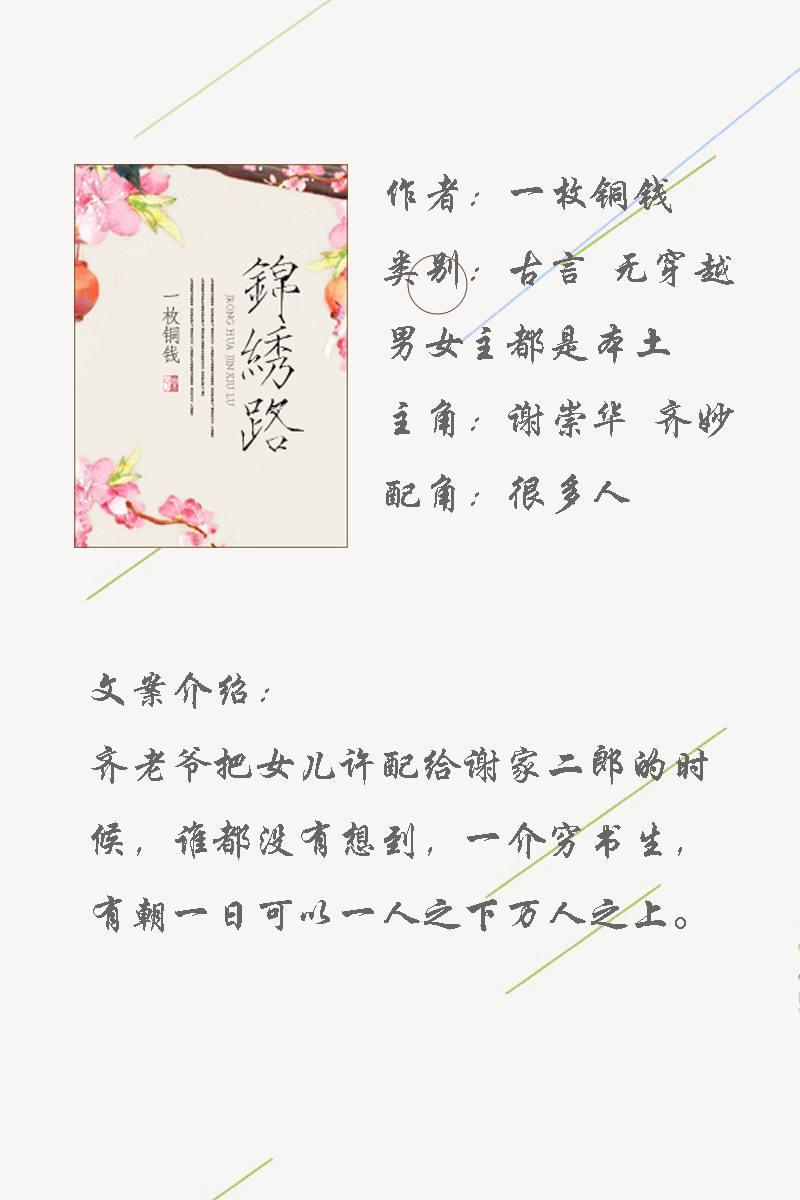 錦綉路
JRONG HUA JIN XIU LU
一枚铜钱
作者：一枚铜钱
类别：古言 无穿越
男女主都是本土
主角：谢崇华 齐妙
配角：很多人
文案介绍：
齐老爷把女儿许配给谢家二郎的时
候，谁都没有想到，一介穷书生，
有朝一日可以一人之下万人之上。